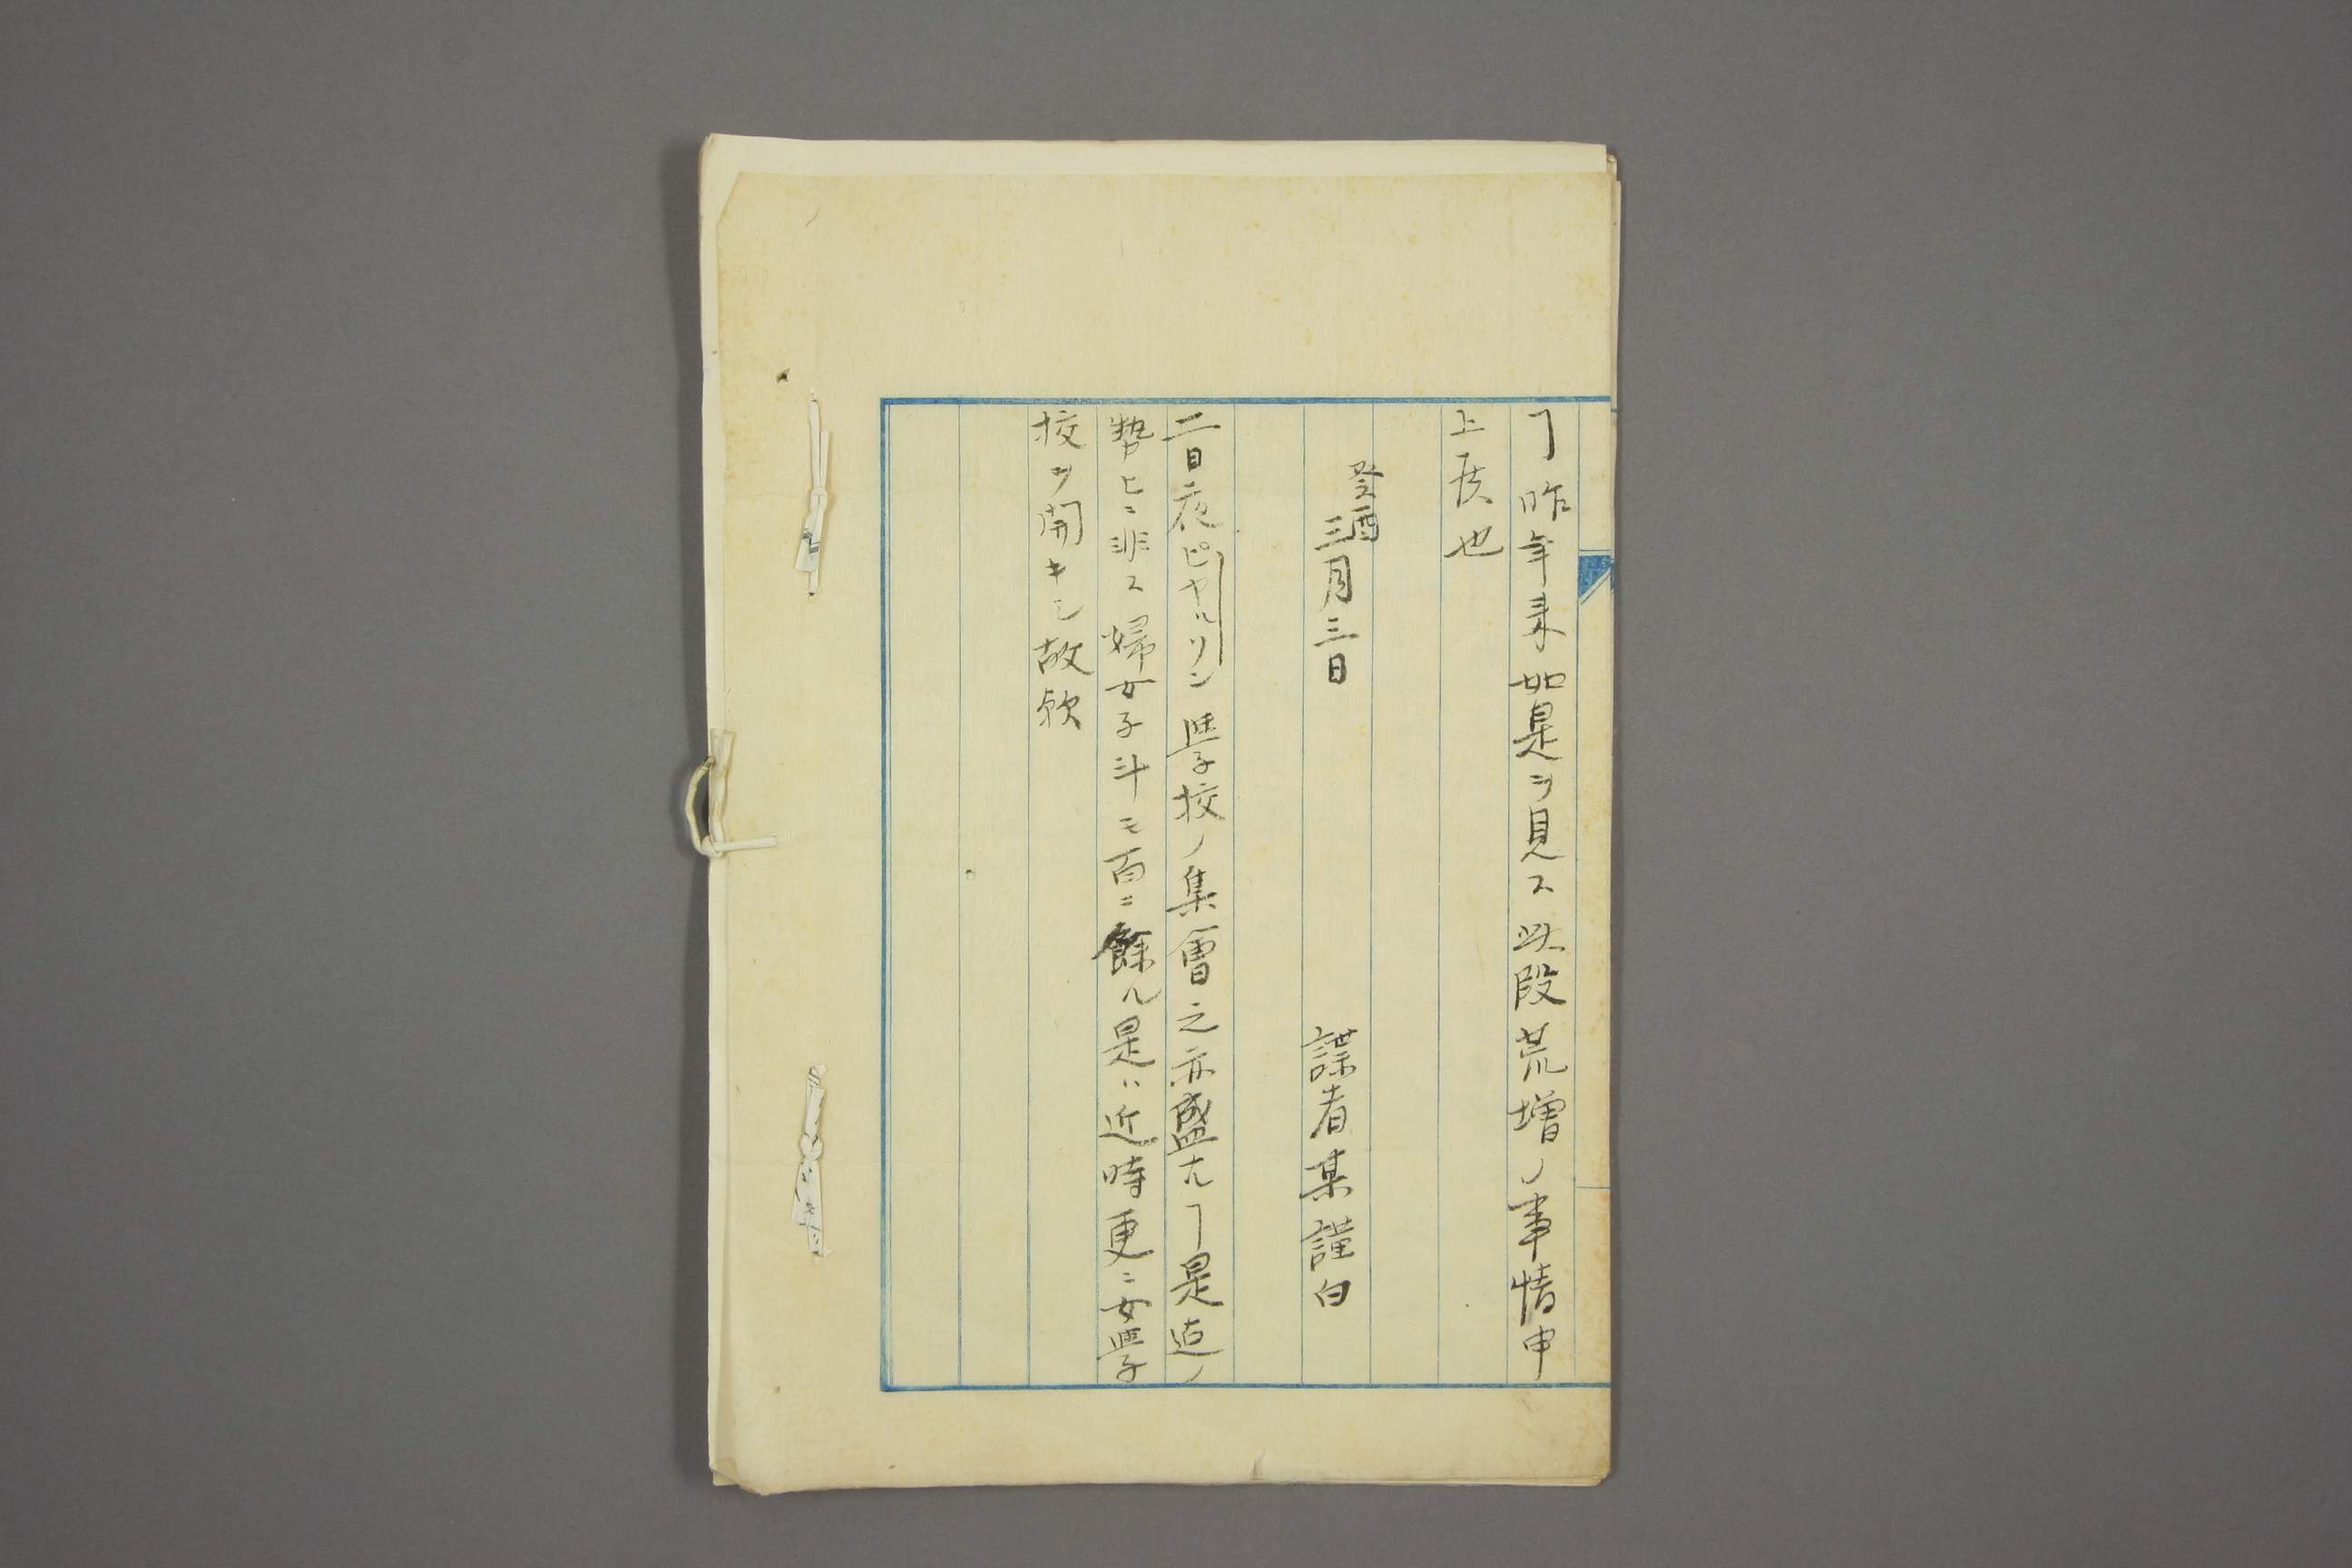 ヿ昨年来如是ヲ見ス此段荒増ノ事情申
上候也
癸酉
三月三日　諜者某謹白
二日夜ピヤルリン學校ノ集會之亦盛ナルヿ是迠ノ
勢ヒニ非ス婦女子斗モ百ニ餘ル是ハ近時更ニ女學
校ヲ開キシ故欤